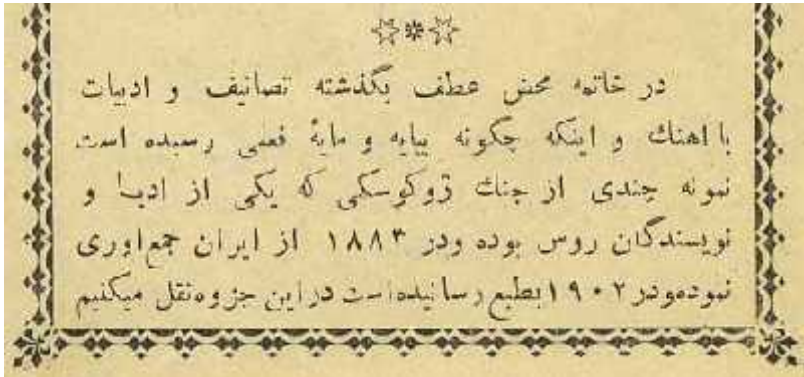 در خاتمه محض عطف بگذشته تصانیف و ادبیات
بااهنك و اینکه چگونه بپایه و مایهٔ فعلی رسیده است
نمونه چندی از جنك ژوکوسکی که یکی از ادبا و
نویسندکان روس بوده ودر ۱۸۸۳ از ایران جمع‌اوری
نموده‌ودر ۱۹۰۲ بطبع رسانیده‌است در این جزوه نقل میکنیم